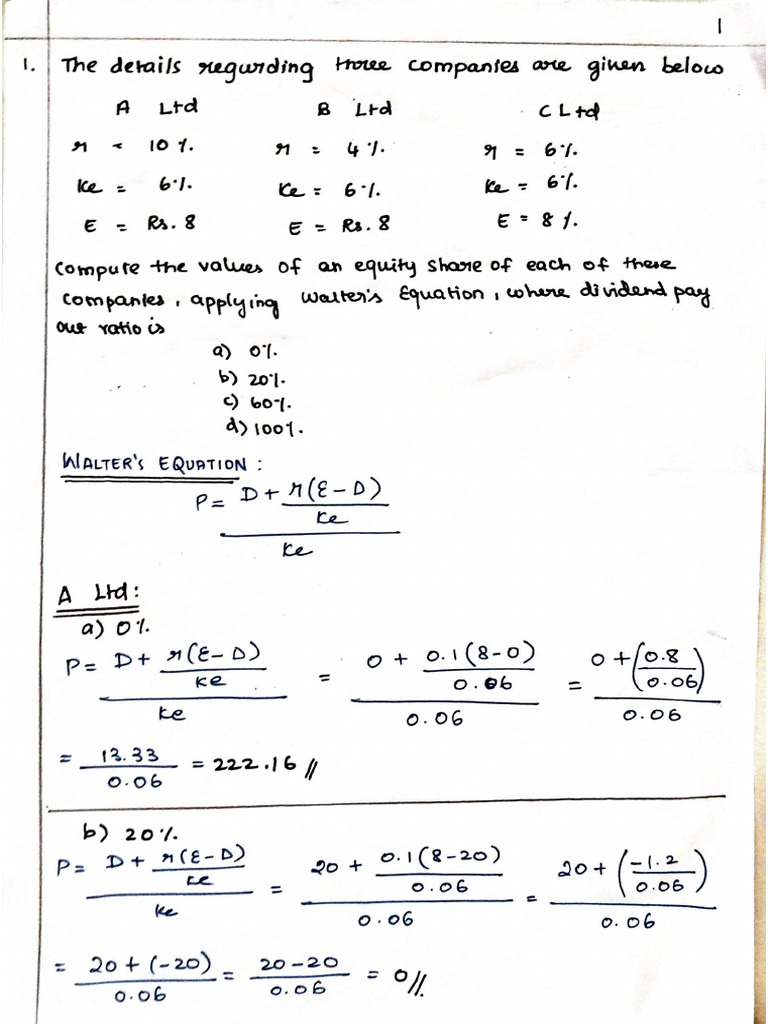 1
1. The details regarding three companies are given below
A Ltd B Ltd C Ltd
r = 10% r = 4% r = 6%
Ke = 6% Ke = 6% Ke = 6%
E = Rs. 8 E = Rs. 8 E = 8%
Compute the values of an equity share of each of these
companies, applying Walter's Equation, where dividend pay
out ratio is
a) 0%
b) 20%
c) 60%
d) 100%.
WALTER'S EQUATION :
P = D + r(E-D)
Ke
Ke
A Ltd:
a) 0%
P = D + r(E-D) = 0 + 0.1(8-0) = 0 + (0.8
Ke 0.06 0.06)
Ke 0.06 0.06
= 13.33 = 222.16 //
0.06
b) 20%
P = D + r(E-D) = 20 + 0.1(8-20) = 20 + (-1.2
Ke 0.06 0.06)
Ke 0.06 0.06
= 20 + (-20) = 20-20 = 0 //.
0.06 0.06